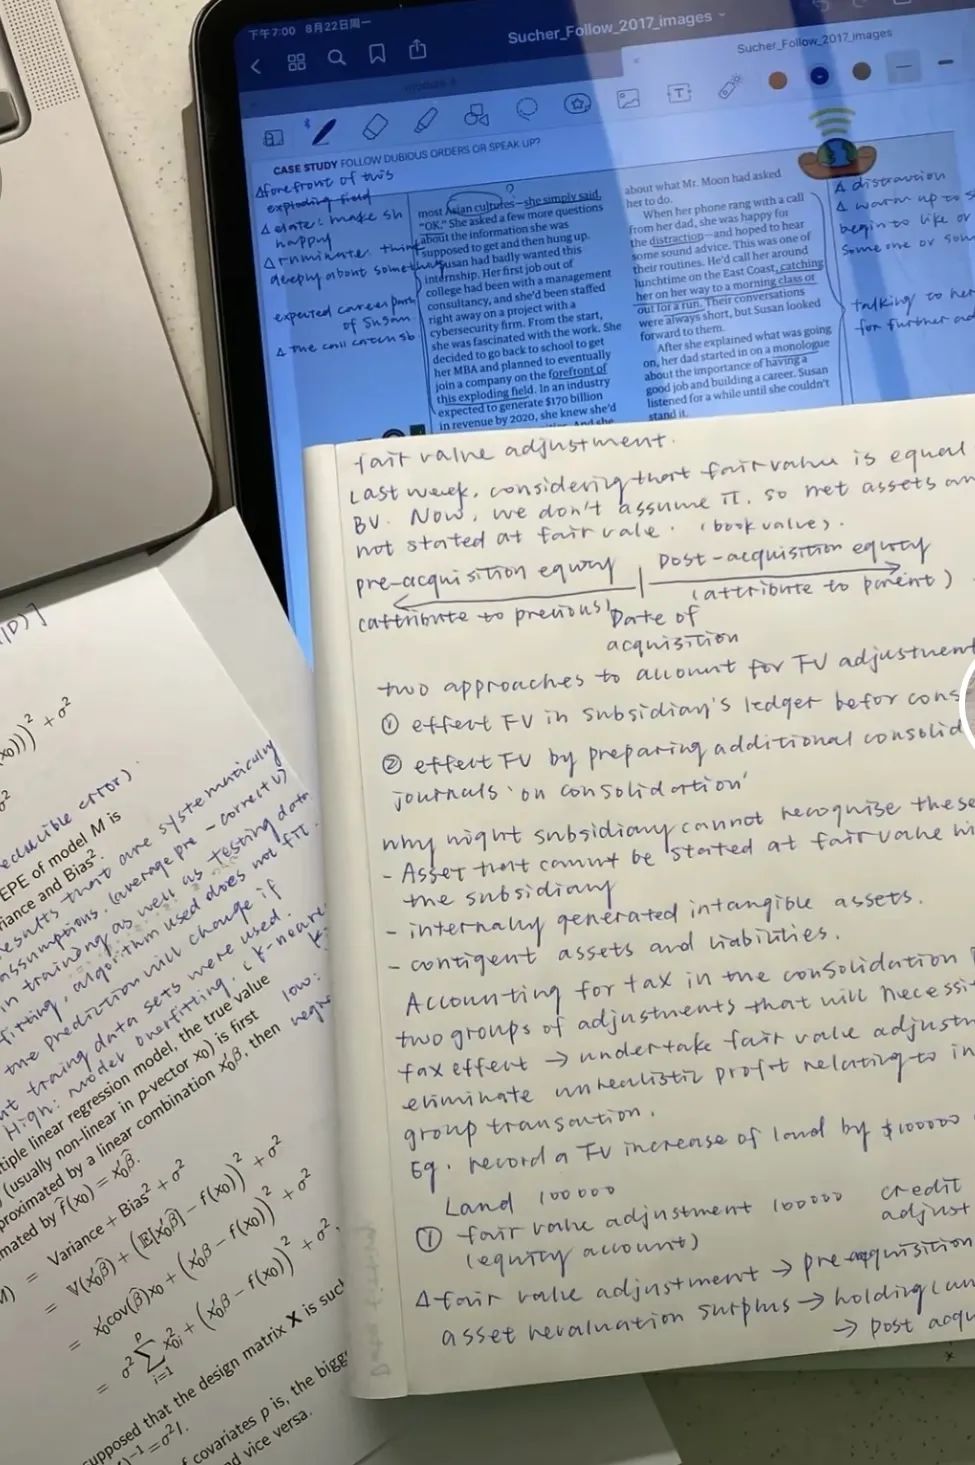 下午7:00 8月22日周一
Sucher_Follow_2017_images
Sucher_Follow_2017_images
CASE STUDY FOLLOW DUBIOUS ORDERS OR SPEAK UP?
△forefront of this
exploding field
△ elate: make sb
happy
△ ruminate: think
deeply about something
expected career path
of Susan
△ the call caten sb
?
most Asian cultures—she simply said,
"OK." She asked a few more questions
about the information she was
supposed to get and then hung up.
Susan had badly wanted this
internship. Her first job out of
college had been with a management
consultancy, and she'd been staffed
right away on a project with a
cybersecurity firm. From the start,
she was fascinated with the work. She
decided to go back to school to get
her MBA and planned to eventually
join a company on the forefront of
this exploding field. In an industry
expected to generate $170 billion
in revenue by 2020, she knew she'd
And she
about what Mr. Moon had asked
her to do.
When her phone rang with a call
from her dad, she was happy for
the distraction—and hoped to hear
some sound advice. This was one of
their routines. He'd call her around
lunchtime on the East Coast, catching
her on her way to a morning class or
out for a run. Their conversations
were always short, but Susan looked
forward to them.
After she explained what was going
on, her dad started in on a monologue
about the importance of having a
good job and building a career. Susan
listened for a while until she couldn't
stand it.
△ distraction
△ warm up to s
begin to like or
someone or som
talking to her
for further ad
fair value adjustment.
Last week, considering that fair value is equal
BV. Now, we don't assume it. so net assets an
not stated at fair vale. (book value).
pre-acquisition equity | post-acquisition equity
(attribute to previous) (attribute to parent)
Date of
acquisition
two approaches to account for FV adjustment
① effect FV in subsidiary's ledger befor cons
② effect FV by preparing additional consolid
journals 'on consolidation'
why might subsidiary cannot recognise these
- Asset that cannt be stated at fair value wi
the subsidiary
- internally generated intangible assets.
- contigent assets and liabilities.
Accounting for tax in the consolidation
two groups of adjustments that will necessi
tax effect → undertake fair value adjustm
eliminate unrealistic profit relating to in
group transaction.
Eg. record a FV increase of land by $100000
Land 100000
① fair value adjustment 100000 credit
(equity account) adjust
△ fair value adjustment → pre-acquisition
asset revaluation surplus → holding
→ post acqu
|D)]
(x0)))² + σ²
σ²
educible error).
EPE of model M is
riance and Bias².
results that are systematically
assumptions. (average pre - correct v)
in training as well as testing data
fitting, algorithm used does not fit.
the prediction will change if
nt traing data sets were used.
High: model overfitting. (k-neare
low:
tiple linear regression model, the true value
(usually non-linear in p-vector x0) is first
proximated by a linear combination x′0β, then
mated by f̂(x0) = x′0β̂.
M) = Variance + Bias² + σ²
= 𝕍(x′0β̂) + (𝔼[x′0β̂] − f(x0))² + σ²
= x′0cov(β̂)x0 + (x′0β − f(x0))² + σ²
= σ² ∑ᵖᵢ₌₁ x²0i + (x′0β − f(x0))² + σ²,
supposed that the design matrix X is such
)⁻¹ = σ²I.
f covariates p is, the bigg
nd vice versa.